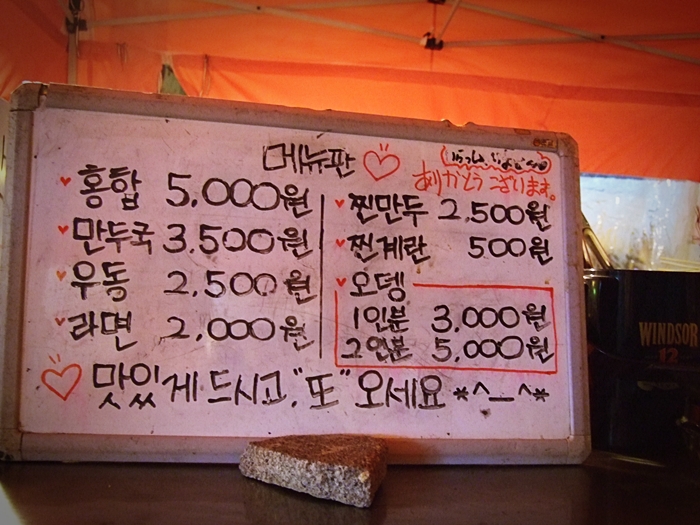 메뉴판
いらっしゃいませ
ありがとうございます。
홍합 5,000원
만두국 3,500원
우동 2,500원
라면 2,000원
찐만두 2,500원
찐계란 500원
오뎅
1인분 3,000원
2인분 5,000원
맛있게 드시고, "또" 오세요 *^—^*
WINDSOR
12